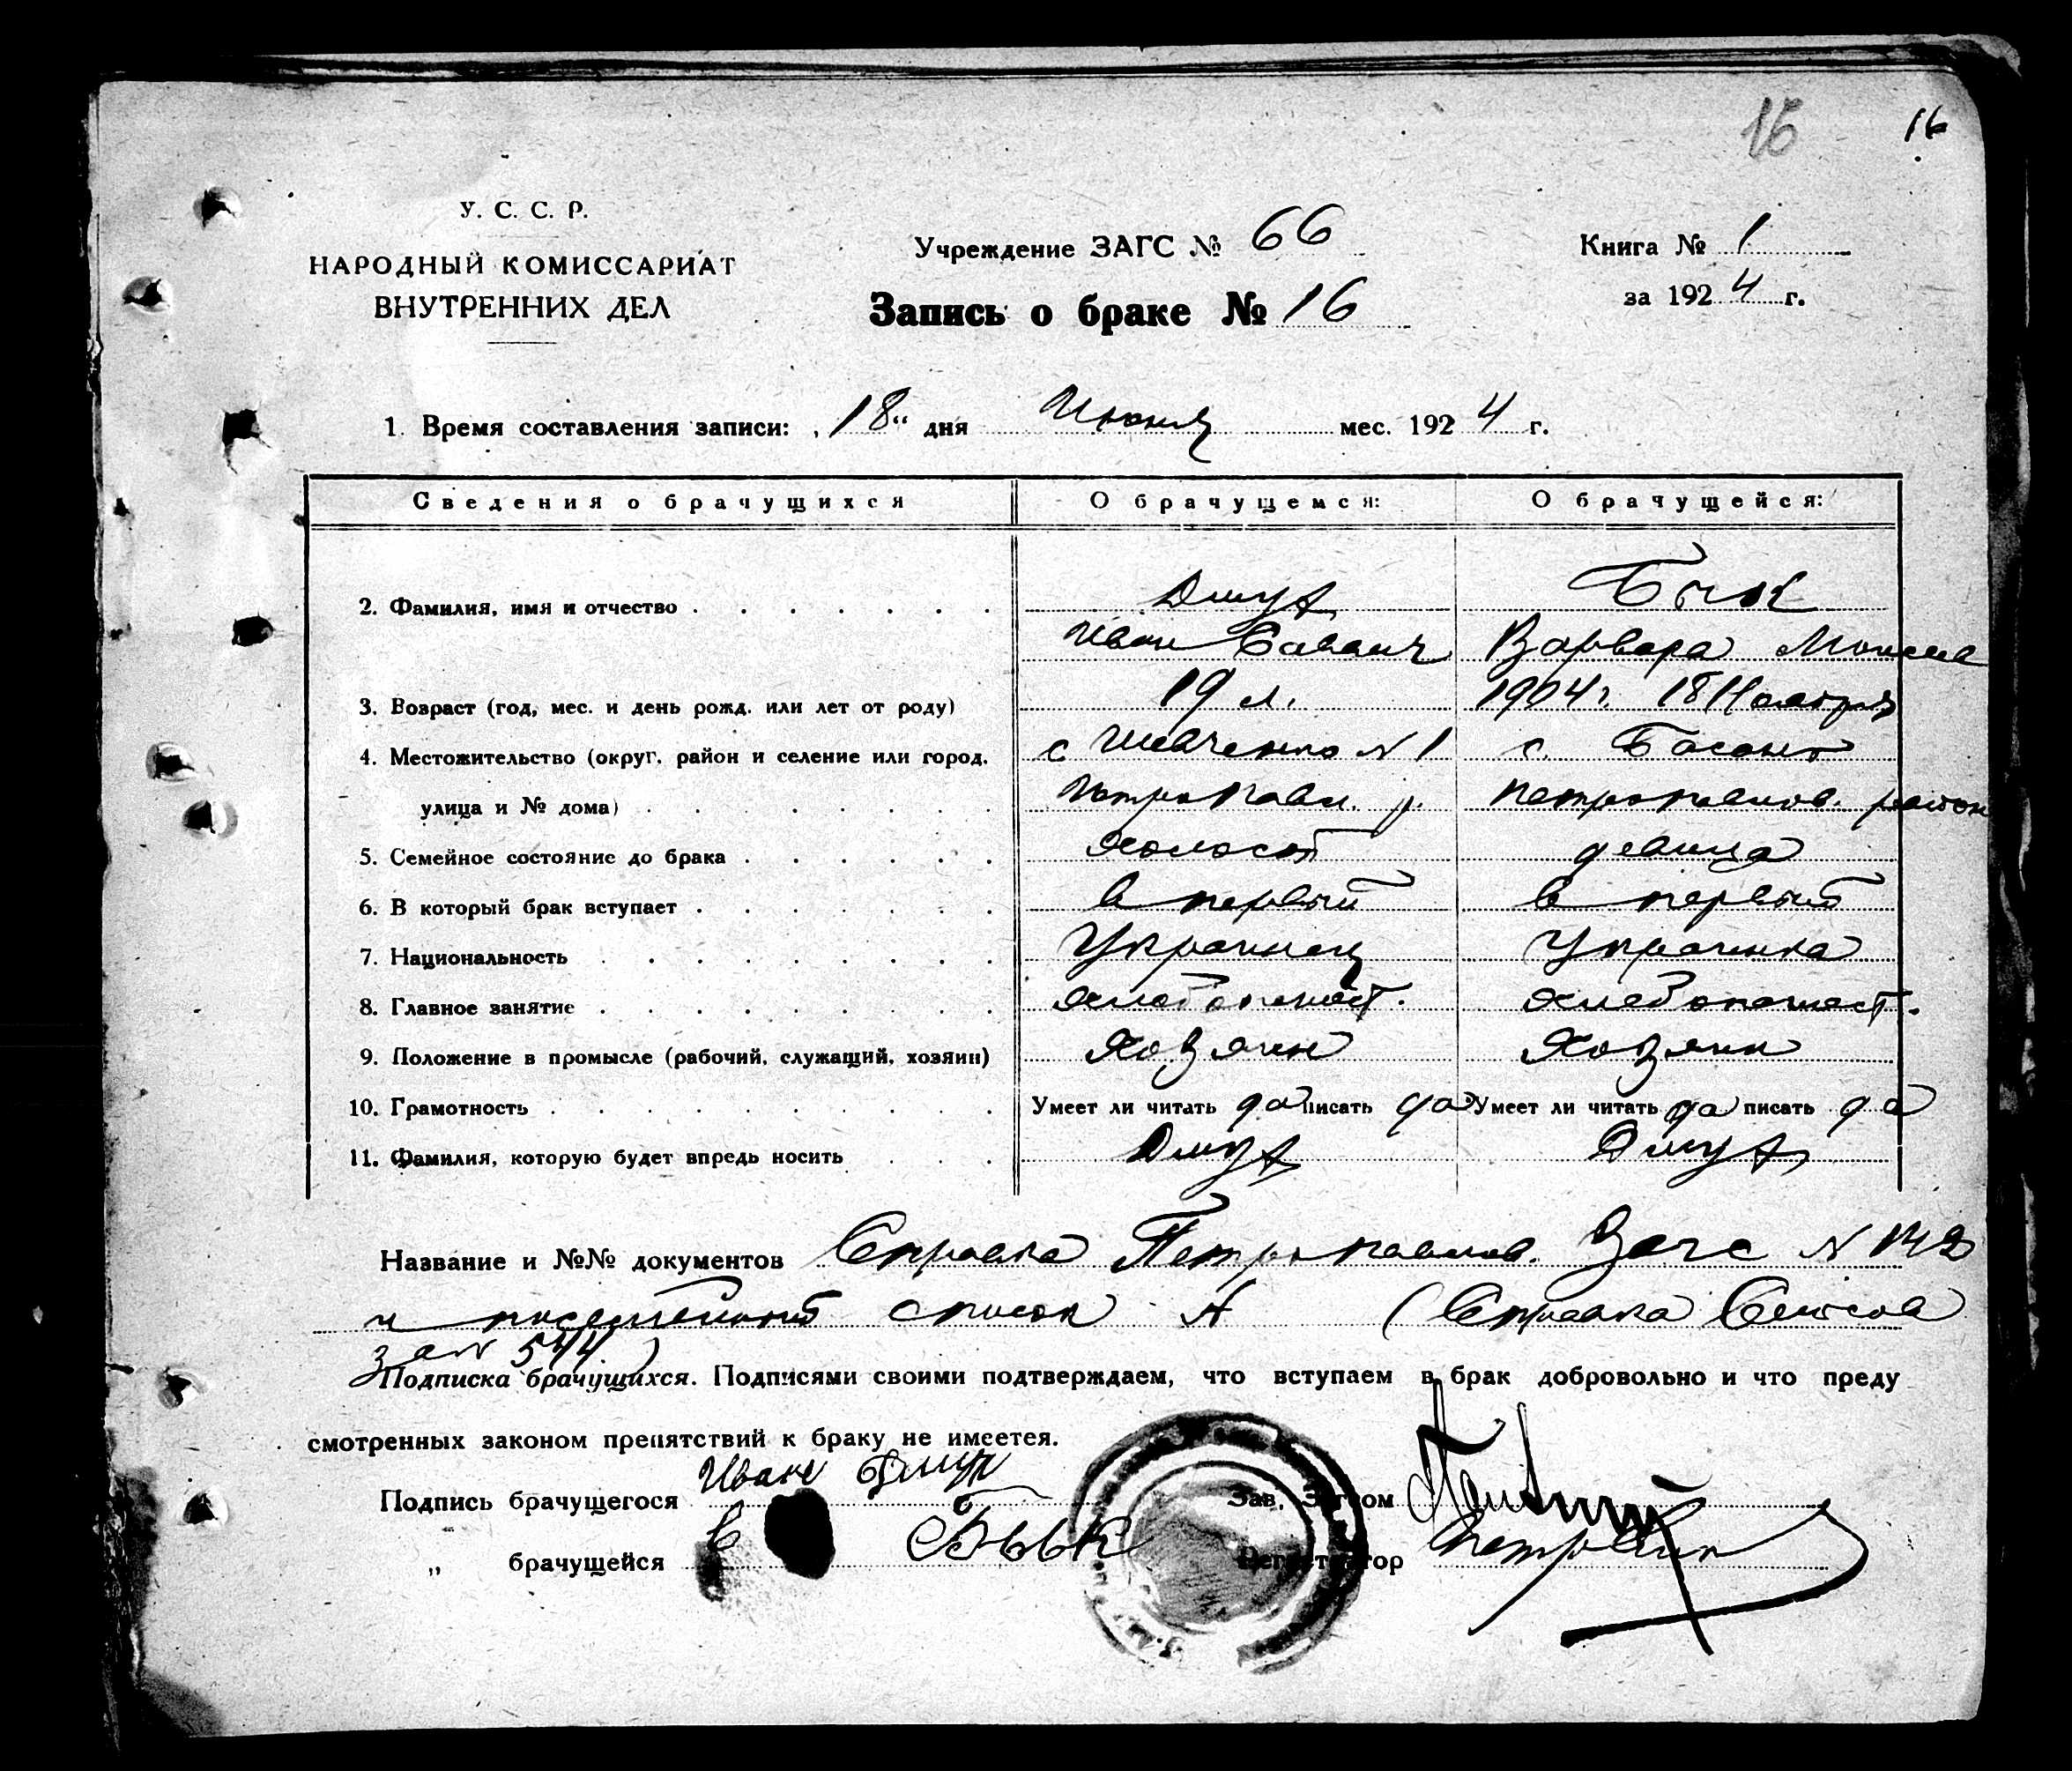 16
16
У. С. С. Р.
НАРОДНЫЙ КОМИССАРИАТ
ВНУТРЕННИХ ДЕЛ
Учреждение ЗАГС № 66
Запись о браке № 16
Книга № 1
за 1924 г.
1. Время составления записи: „18“ дня Июня мес. 1924 г.
Сведения о брачущихся О брачущемся: О брачущейся:
2. Фамилия, имя и отчество . . . . . . . Дмут Бык
Иван Савич Варвара Моисеев
3. Возраст (год, мес. и день рожд. или лет от роду) 19 л. 1904 г. 18 Ноября
4. Местожительство (округ, район и селение или город, с Шевченко N 1 с. Басань
улица и № дома) . . . . . . . . Петропавл. р. Петропавлов. район
5. Семейное состояние до брака . . . . . . холост девица
6. В который брак вступает . . . . . . . в первый в первый
7. Национальность . . . . . . . . Украинец Украинка
8. Главное занятие . . . . . . . . . хлебопашест. хлебопашест.
9. Положение в промысле (рабочий, служащий, хозяин) Хозяин Хозяин
10. Грамотность . . . . . . . . . . Умеет ли читать да писать да Умеет ли читать да писать да
11. Фамилия, которую будет впредь носить . . . Дмут Дмут
Название и №№ документов Справка Петропавлов. Загс N 142
и посемейный список (Справка Сельсов
за N 544)
Подписка брачущихся. Подписями своими подтверждаем, что вступаем в брак добровольно и что преду
смотренных законом препятствий к браку не имеется.
Подпись брачущегося Иван Дмут
„ брачущейся В Бык
Зав. Загсом
Регистратор